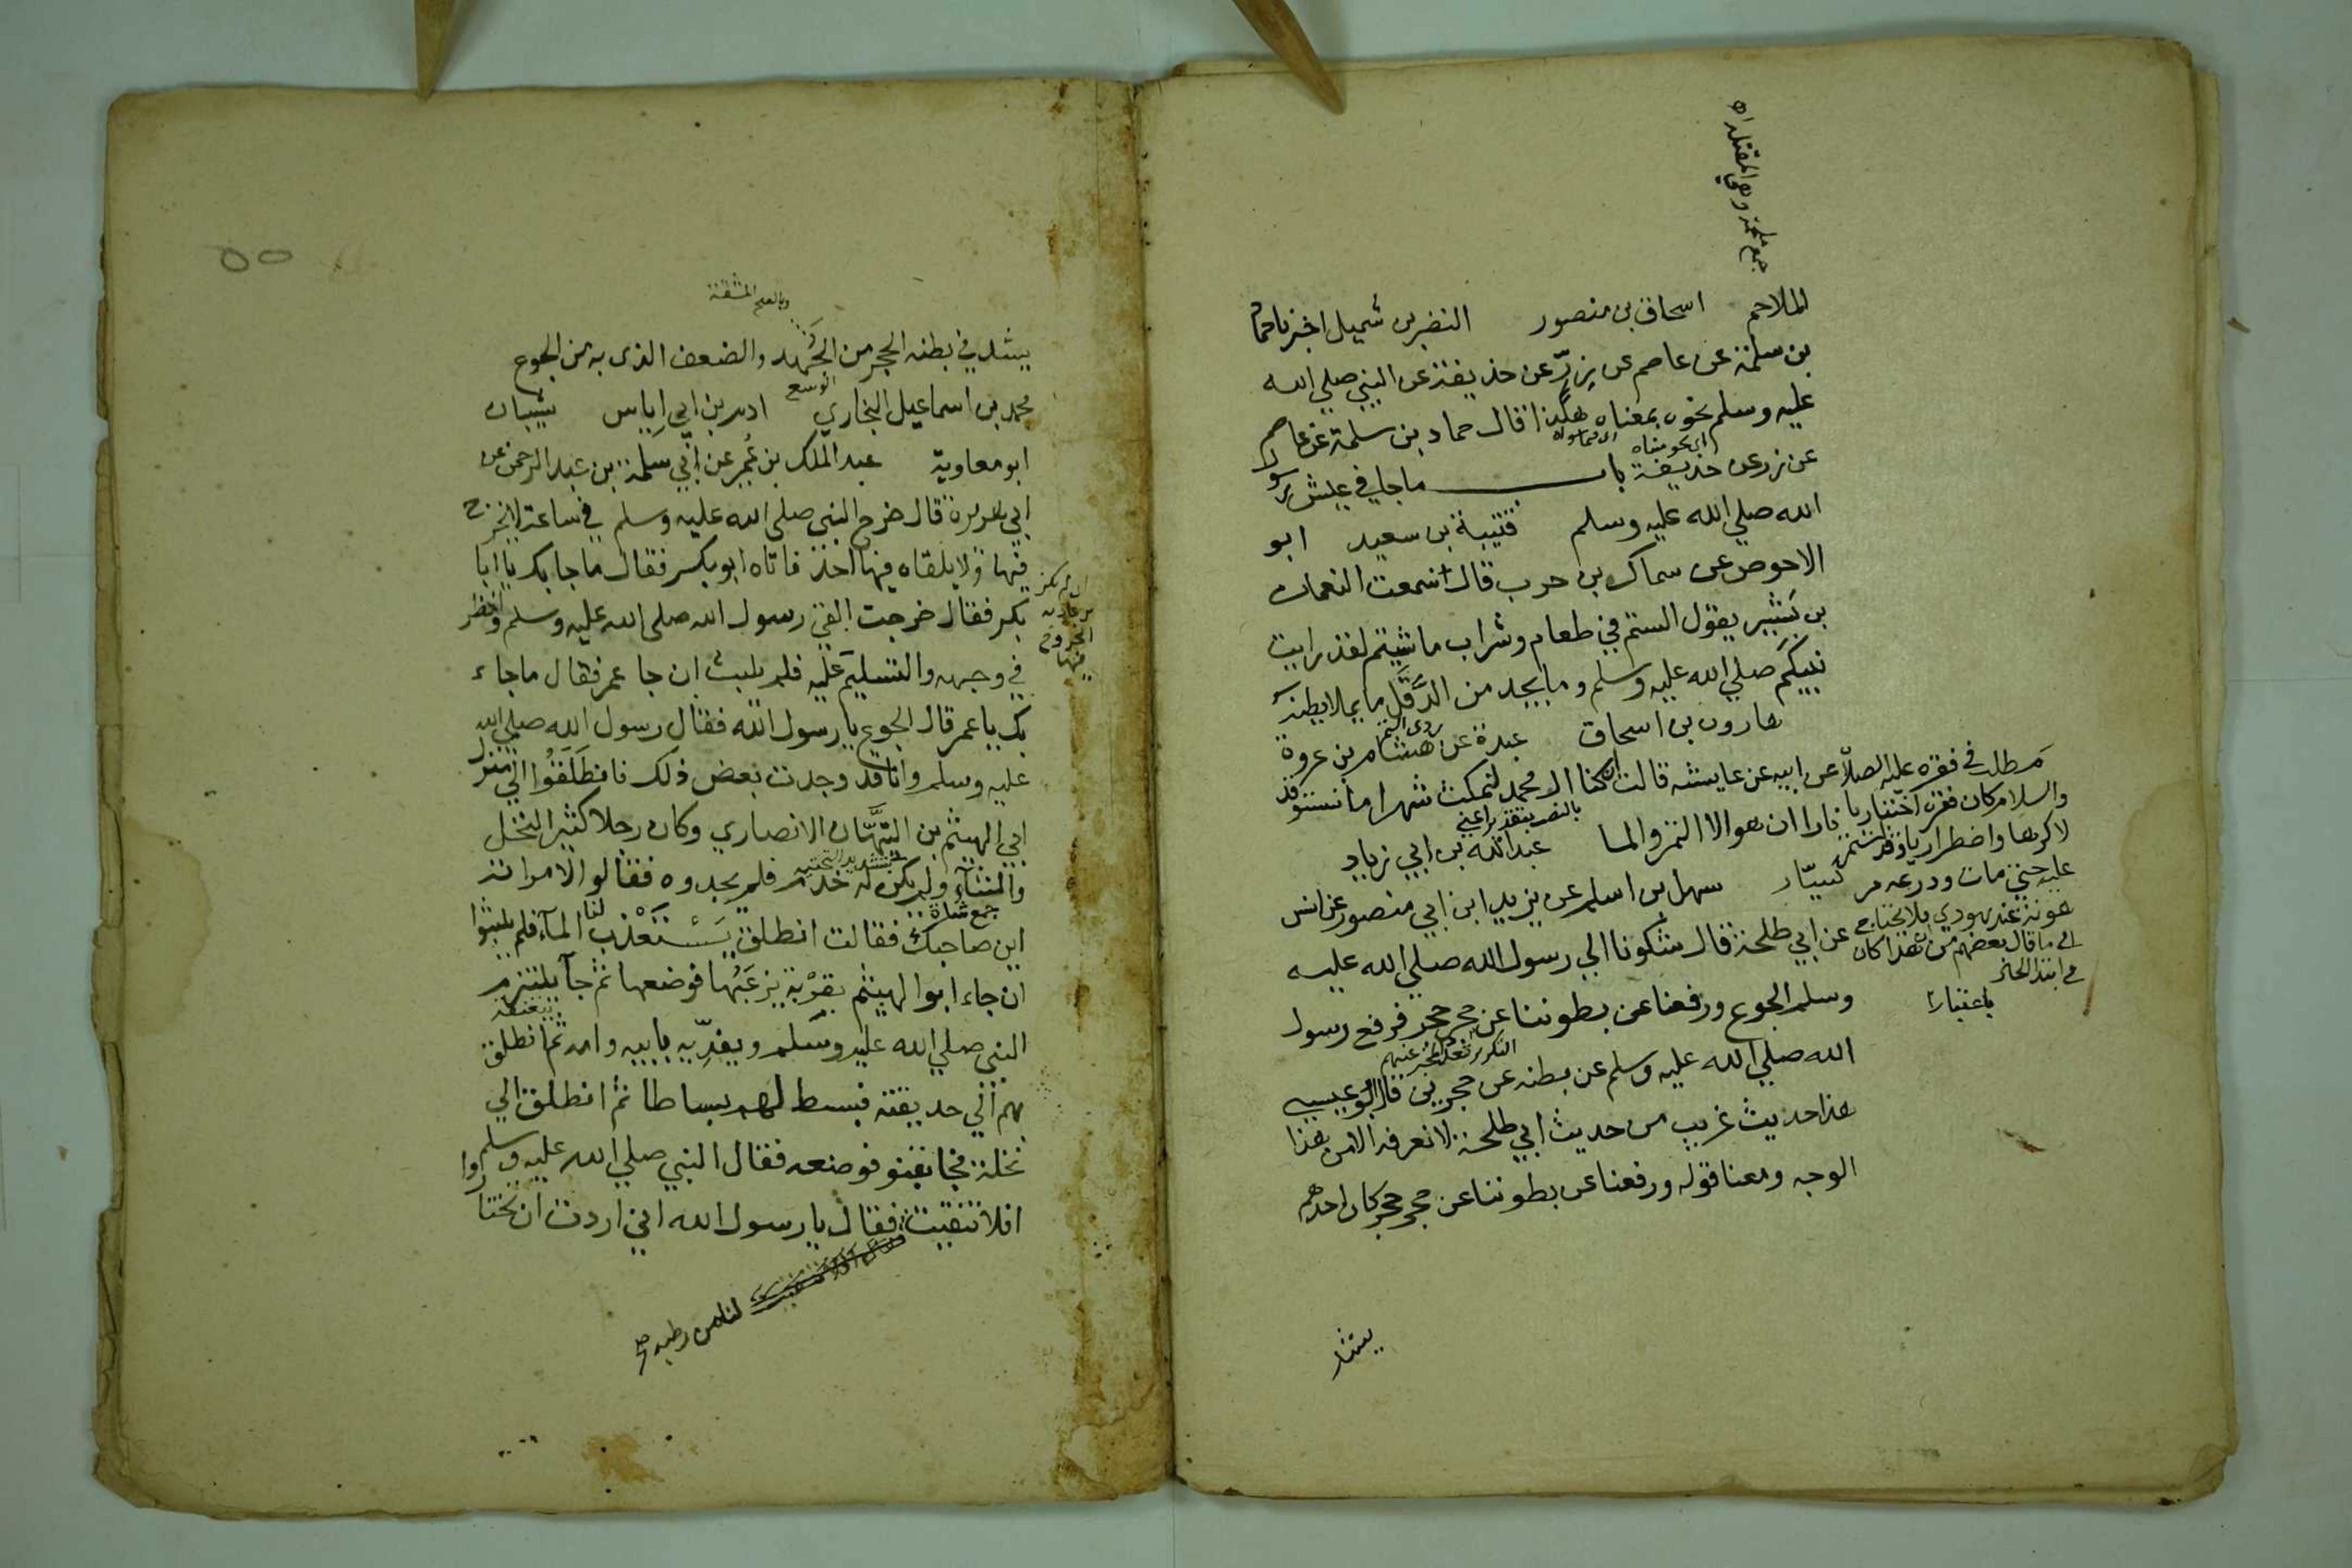 جمع ملحمة وهي المقتلة اه
الملاحم اسحاق بن منصور النضر بن شميل اخبرنا حماد
بن سلمة عن عاصم عن زِرّ عن حذيفة عن النبي صلي الله
عليه وسلم نحوه بمعناه هكذا قال حماد بن سلمة عن عاصم
اي نحو معناه
عن زر عن حذيفة باب ما جا في عيش رسو
الله صلي الله عليه وسلم قتيبة بن سعيد ابو
الاحوص عن سماك بن حرب قال سمعت النعمان
بن بَشير يقول الستم في طعام وشراب ما شيتم لقد رايت
نبيكم صلي الله عليه وسلم وما يجد من الدَّقَل ما يملا بطنه
ردي التمر
هارون بن اسحاق عبدة عن هشام بن عروة
عن ابيه عن عايشه قالت ان كنا ال محمد لنمكث شهرا ما نستوقد
بالنصب بتقدير اعني
نارا ان هو الا التمر والما عبد الله بن ابي زياد
سيّار سهل بن اسلم عن يزيد ابن ابي منصور عن انس
عن ابي طلحة قال شكونا الي رسول الله صلي الله عليه
وسلم الجوع ورفعنا عن بطوننا عن حجر حجر فرفع رسول
الله صلي الله عليه وسلم عن بطنه عن حجرين قال ابو عيسي
هذا حديث غريب من حديث ابي طلحة لا نعرفه الا من هذا
الوجه ومعنا قوله ورفعنا عن بطوننا عن حجر حجر كان احدهم
يشد
مَطلب في فقره عليه الصلاة
والسلام كان فقره اختياريا
لا كرها واضطراريا وقد استمر
عليه حتي مات ودرعه مر
هونة عند يهودي فلا يحتاج
الي ما قال بعضهم من ان هذا كان
في ابتدا الحال
باعتبار
وبالضم المشقة
يشد في بطنه الحجر من الجَُهد والضعف الذي به من الجوع
محمد بن اسماعيل البخاري ادم بن ابي اِياس شيبان
ابو معاوية عبد الملك بن عُمير عن ابي سلمة بن عبد الرحمن عن
ابي هريرة قال خرج النبي صلي الله عليه وسلم في ساعة لا يخرج
فيها ولا يلقاه فيها احد فاتاه ابو بكر فقال ما جا بك يا ابا
بكر فقال خرجت القي رسول الله صلي الله عليه وسلم وانظر
في وجهه والتسليم عليه فلم يلبث ان جا عمر فقال ما جاء
بك يا عمر قال الجوع يا رسول الله فقال رسول الله صلي الله
عليه وسلم وانا قد وجدت بعض ذلك فانطلَقُوا الي منزل
ابي الهيثم بن التيّهان الانصاري وكان رجلا كثير النخل
بتشديد التحتية
والشآء ولم يكن له خدم فلم يجدوه فقالوا لامراته
جمع شاة
اين صاحبك فقالت انطلق يَسْتَعْذب لنا المآء فلم يلبثوا
ان جاء ابو الهيثم بقِرْبة يزعَبُها فوضعها ثم جآ يلتزم
يعتنقه
النبي صلي الله عليه وسلم ويفدّيه بابيه وامه ثم انطلق
بهم الي حديقته فبسط لهم بساطا ثم انطلق الي
نخلة فجا بقنو فوضعه فقال النبي صلي الله عليه وسلم
افلا تنقيت فقال يا رسول الله اني اردت ان تختاروا
لنا من رطبه صح
الخروج
فيها